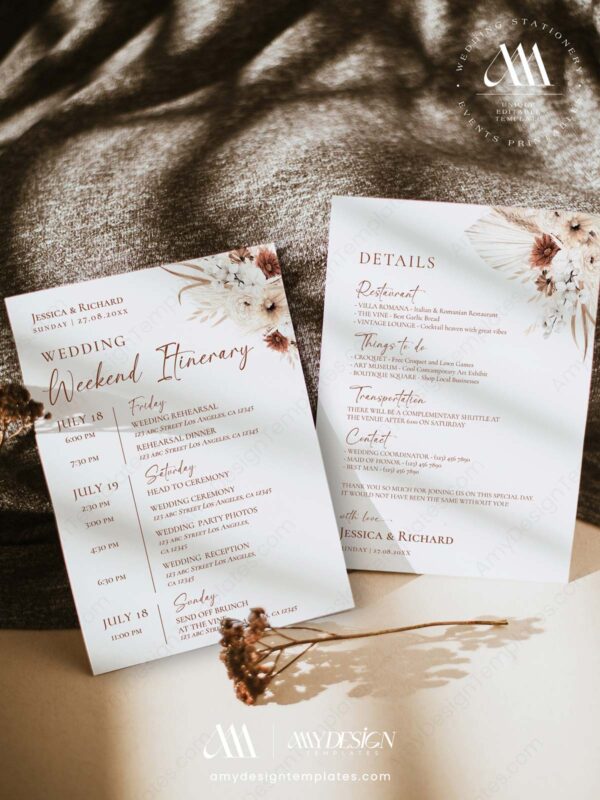 WEDDING STATIONERY
EVENTS PRINTABLES
UNIQUE
EDITABLE
TEMPLATES
JESSICA & RICHARD
SUNDAY | 27.08.20XX
WEDDING
Weekend Itinerary
Friday
JULY 18
6:00 PM
WEDING REHEARSAL
123 ABC STREET LOS ANGELES, CA 12345
7:30 PM
REHEARSAL DINNER
123 ABC STREET LOS ANGELES, CA 12345
Saturday
JULY 19
2:30 PM
HEAD TO CEREMONY
3:00 PM
WEDDING CEREMONY
123 ABC STREET LOS ANGELES, CA 12345
4:30 PM
WEDDING PARTY PHOTOS
123 ABC STREET LOS ANGELES,
CA 12345
6:30 PM
WEDDING RECEPTION
123 ABC STREET LOS ANGELES,
CA 12345
Sunday
JULY 18
11:00 PM
SEND OFF BRUNCH
AT THE
123 ABC STREET LOS ANGELES, CA 12345
DETAILS
Restaurant
- VILLA ROMANA - Italian & Romanian Restaurant
- THE VINE - Best Garlic Bread
- VINTAGE LOUNGE - Cocktail heaven with great vibes
Things to do
- CROQUET - Free Croquet and Lawn Games
- ART MUSEUM - Cool Contemporary Art Exhibit
- BOUTIQUE SQUARE - Shop Local Businesses
Transportation
THERE WILL BE A COMPLEMENTARY SHUTTLE AT
THE VENUE AFTER 6:00 ON SATURDAY
Contact
- WEDDING COORDINATOR - (123) 456 7890
- MAID OF HONOR - (123) 456 7890
- BEST MAN - (123) 456 7890
THANK YOU SO MUCH FOR JOINING US ON THIS SPECIAL DAY.
IT WOULD NOT HAVE BEEN THE SAME WITHOUT YOU!
with love...
JESSICA & RICHARD
SUNDAY | 27.08.20XX
AMYDESIGN
TEMPLATES
amydesigntemplates.com